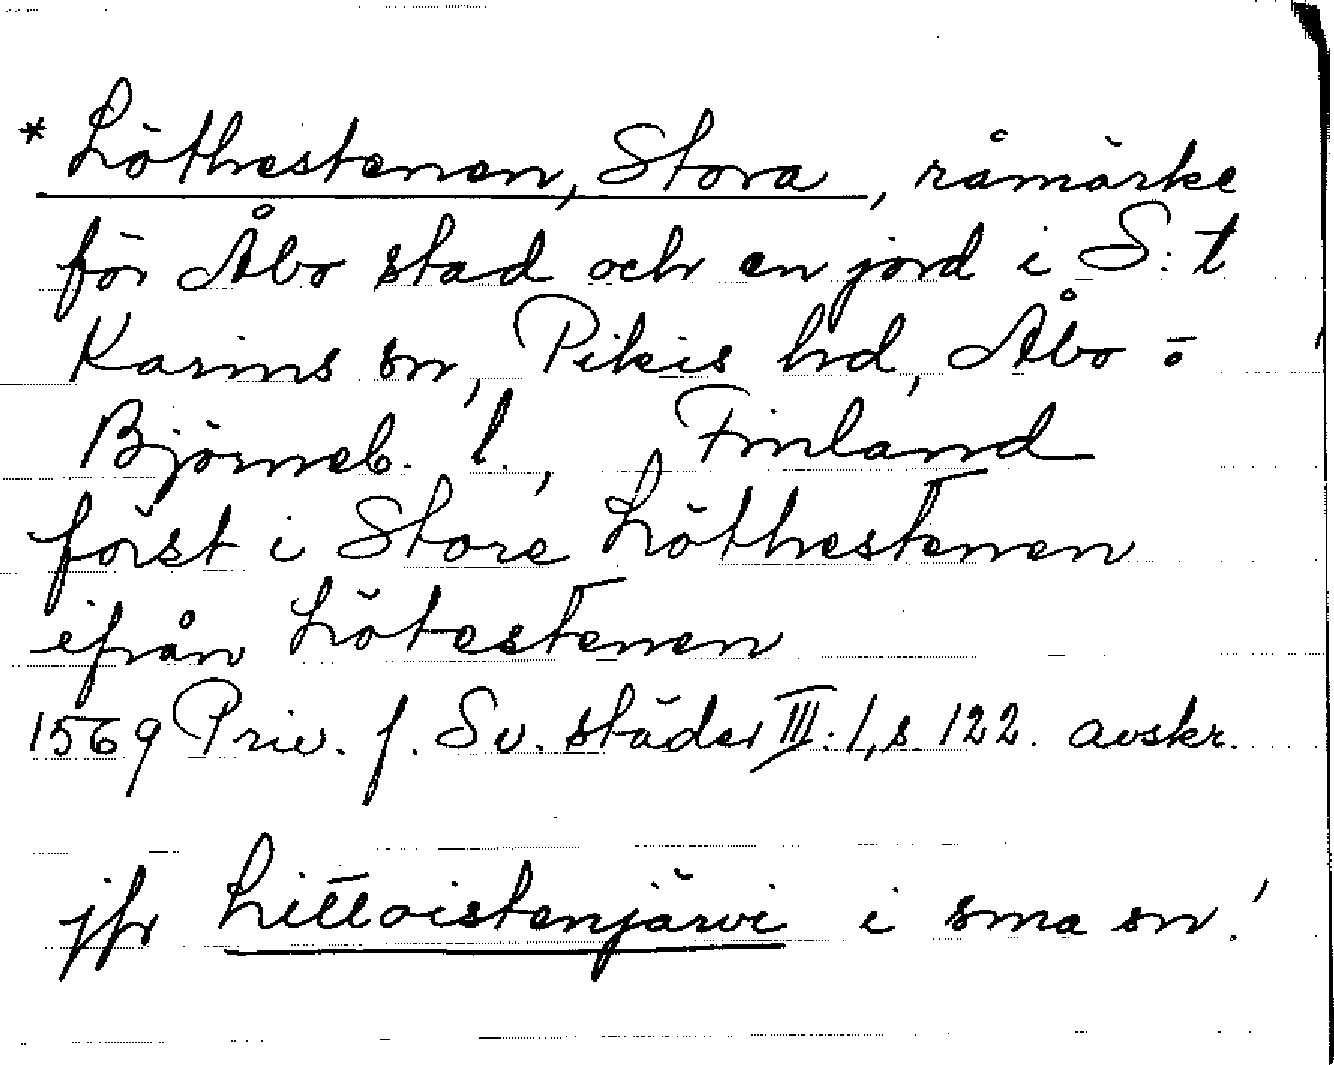 * Löthestenen, Stora, råmärke
för Åbo stad och en jord i S:t
Karins sn, Pikis hd, Åbo o
Björneb. l., Finland
först i Store Löthestenen
ifrån Lötestenen
1569 Priv. f. Sv. städer III:1, s. 122. avskr.
jfr Littoistenjärvi i sma sn!